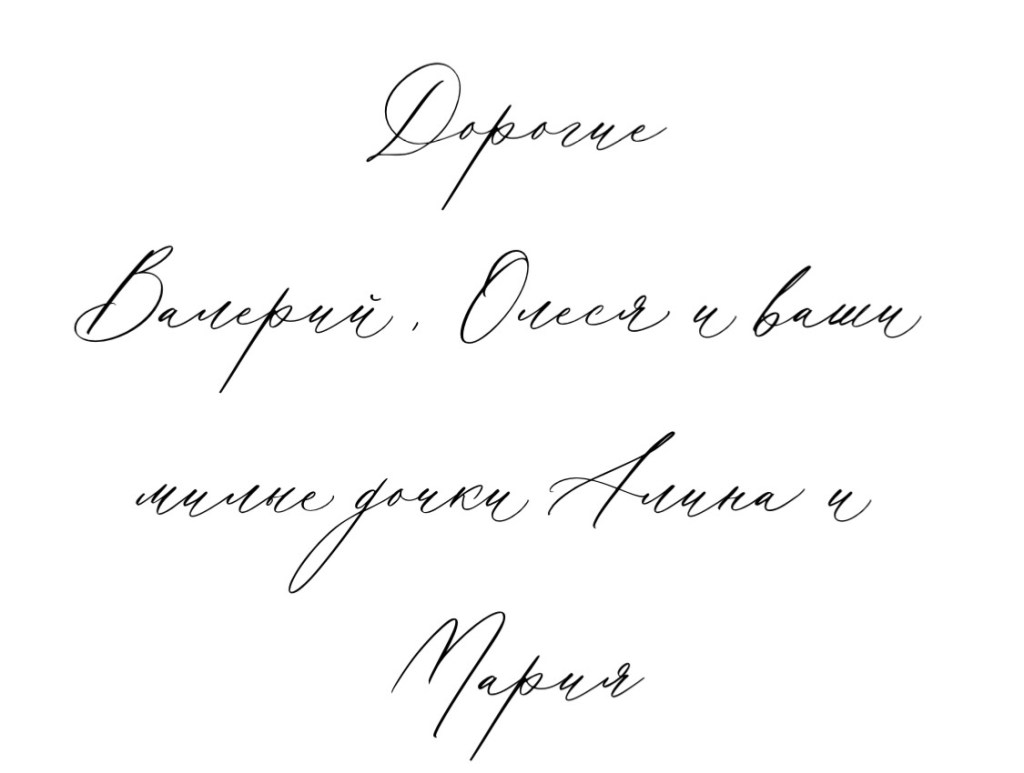 Дорогие
Валерий, Олеся и ваши
милые дочки Алина и
Мария